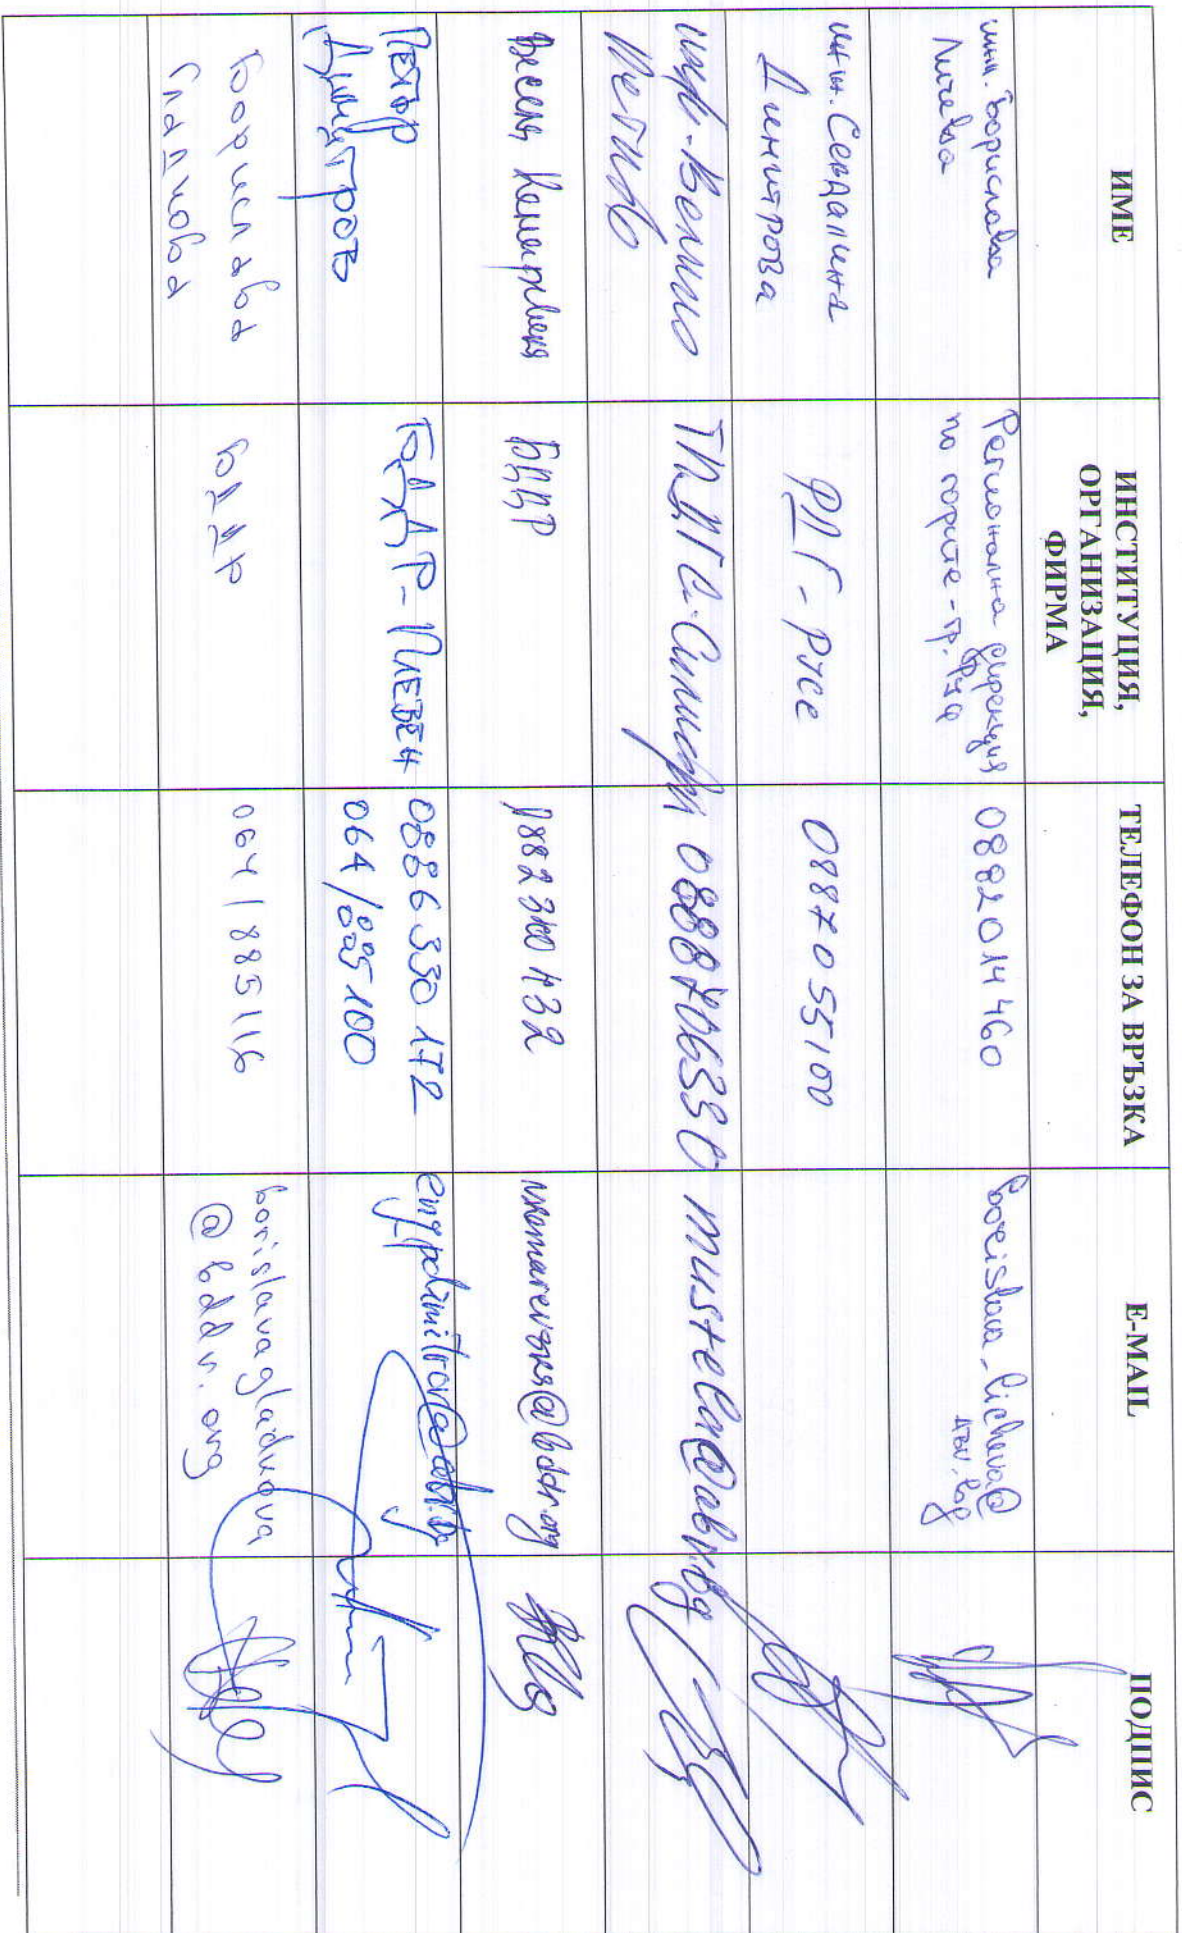 ИМЕ
ИНСТИТУЦИЯ,
ОРГАНИЗАЦИЯ,
ФИРМА
ТЕЛЕФОН ЗА ВРЪЗКА
E-MAIL
ПОДПИС
инж. Борислава
Личева
Регионална дирекция
по горите - гр. Русе
0882014460
borislava_licheva@
abv.bg
инж. Севдалина
Димитрова
РДГ - Русе
0887055100
инж. Велико
ТП ДГС Силистра
mustela@abv.bg
Весела
БДДР
@bddr.org
Петър
Димитров
БДДР - Плевен
0886330172
064/885100
Борислава
Гладнова
БДДР
064/885116
borislavagladnova
@bddr.org